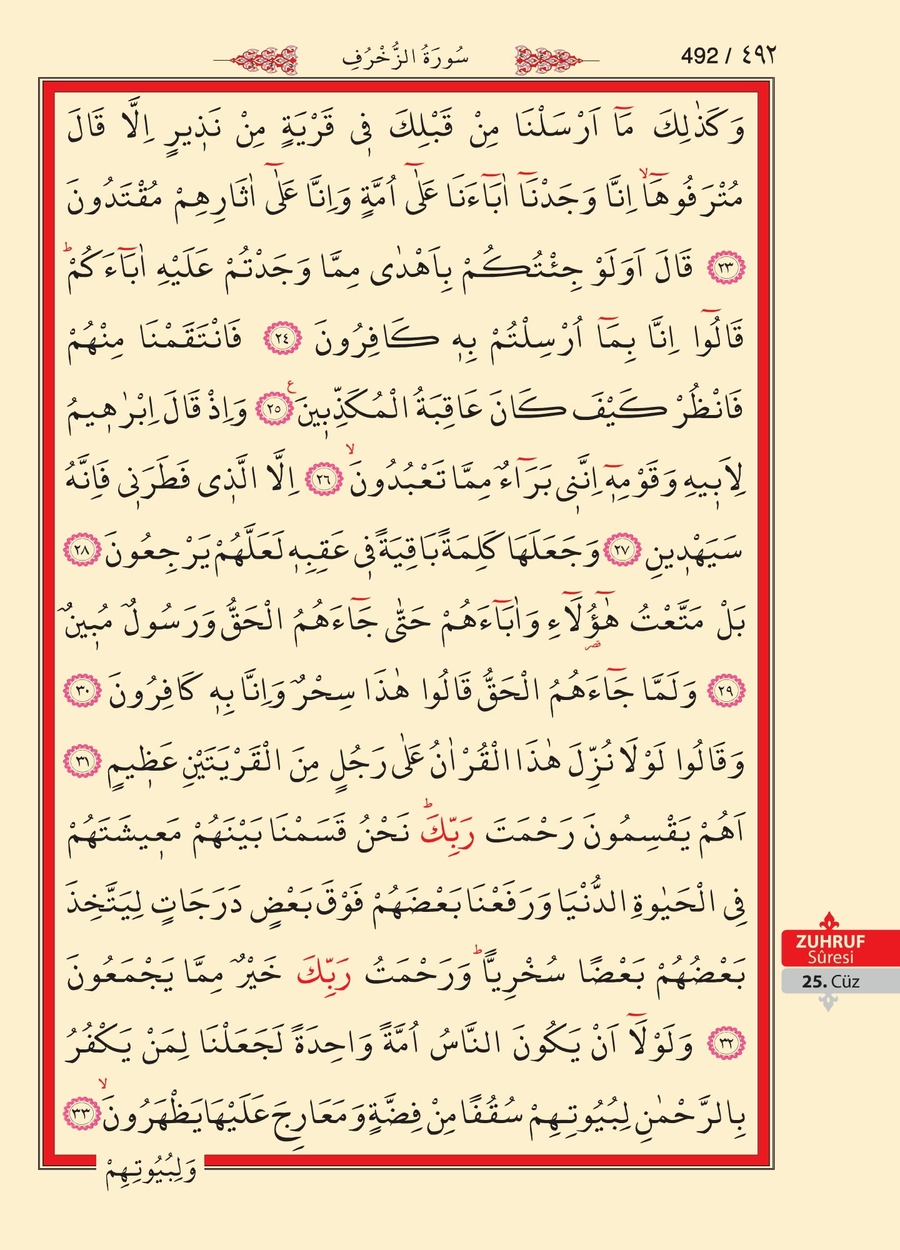 سُورَةُ الزُّخْرُفِ
492 / ٤٩٢
وَكَذٰلِكَ مَٓا اَرْسَلْنَا مِنْ قَبْلِكَ ف۪ي قَرْيَةٍ مِنْ نَذ۪يرٍ اِلَّا قَالَ
مُتْرَفُوهَٓاۙ اِنَّا وَجَدْنَٓا اٰبَٓاءَنَا عَلٰٓى اُمَّةٍ وَاِنَّا عَلٰٓى اٰثَارِهِمْ مُقْتَدُونَ
﴿٢٣﴾ قَالَ اَوَلَوْ جِئْتُكُمْ بِاَهْدٰى مِمَّا وَجَدْتُمْ عَلَيْهِ اٰبَٓاءَكُمْۜ
قَالُٓوا اِنَّا بِمَٓا اُرْسِلْتُمْ بِه۪ كَافِرُونَ ﴿٢٤﴾ فَانْتَقَمْنَا مِنْهُمْ
فَانْظُرْ كَيْفَ كَانَ عَاقِبَةُ الْمُكَذِّب۪ينَ ﴿٢٥﴾ ع وَاِذْ قَالَ اِبْرٰه۪يمُ
لِاَب۪يهِ وَقَوْمِه۪ٓ اِنَّن۪ي بَرَٓاءٌ مِمَّا تَعْبُدُونَۙ ﴿٢٦﴾ اِلَّا الَّذ۪ي فَطَرَن۪ي فَاِنَّهُ
سَيَهْد۪ينِ ﴿٢٧﴾ وَجَعَلَهَا كَلِمَةً بَاقِيَةً ف۪ي عَقِبِه۪ لَعَلَّهُمْ يَرْجِعُونَ ﴿٢٨﴾
بَلْ مَتَّعْتُ هٰٓؤُ۬لَٓاءِ وَاٰبَٓاءَهُمْ حَتّٰى جَٓاءَهُمُ الْحَقُّ وَرَسُولٌ مُب۪ينٌ
﴿٢٩﴾ وَلَمَّا جَٓاءَهُمُ الْحَقُّ قَالُوا هٰذَا سِحْرٌ وَاِنَّا بِه۪ كَافِرُونَ ﴿٣٠﴾
وَقَالُوا لَوْلَا نُزِّلَ هٰذَا الْقُرْاٰنُ عَلٰى رَجُلٍ مِنَ الْقَرْيَتَيْنِ عَظ۪يمٍ ﴿٣١﴾
اَهُمْ يَقْسِمُونَ رَحْمَتَ رَبِّكَۜ نَحْنُ قَسَمْنَا بَيْنَهُمْ مَع۪يشَتَهُمْ
فِي الْحَيٰوةِ الدُّنْيَا وَرَفَعْنَا بَعْضَهُمْ فَوْقَ بَعْضٍ دَرَجَاتٍ لِيَتَّخِذَ
بَعْضُهُمْ بَعْضًا سُخْرِيًّاۜ وَرَحْمَتُ رَبِّكَ خَيْرٌ مِمَّا يَجْمَعُونَ
﴿٣٢﴾ وَلَوْلَٓا اَنْ يَكُونَ النَّاسُ اُمَّةً وَاحِدَةً لَجَعَلْنَا لِمَنْ يَكْفُرُ
بِالرَّحْمٰنِ لِبُيُوتِهِمْ سُقُفًا مِنْ فِضَّةٍ وَمَعَارِجَ عَلَيْهَا يَظْهَرُونَۙ ﴿٣٣﴾
وَلِبُيُوتِهِمْ
ZUHRUF
Sûresi
25. Cüz